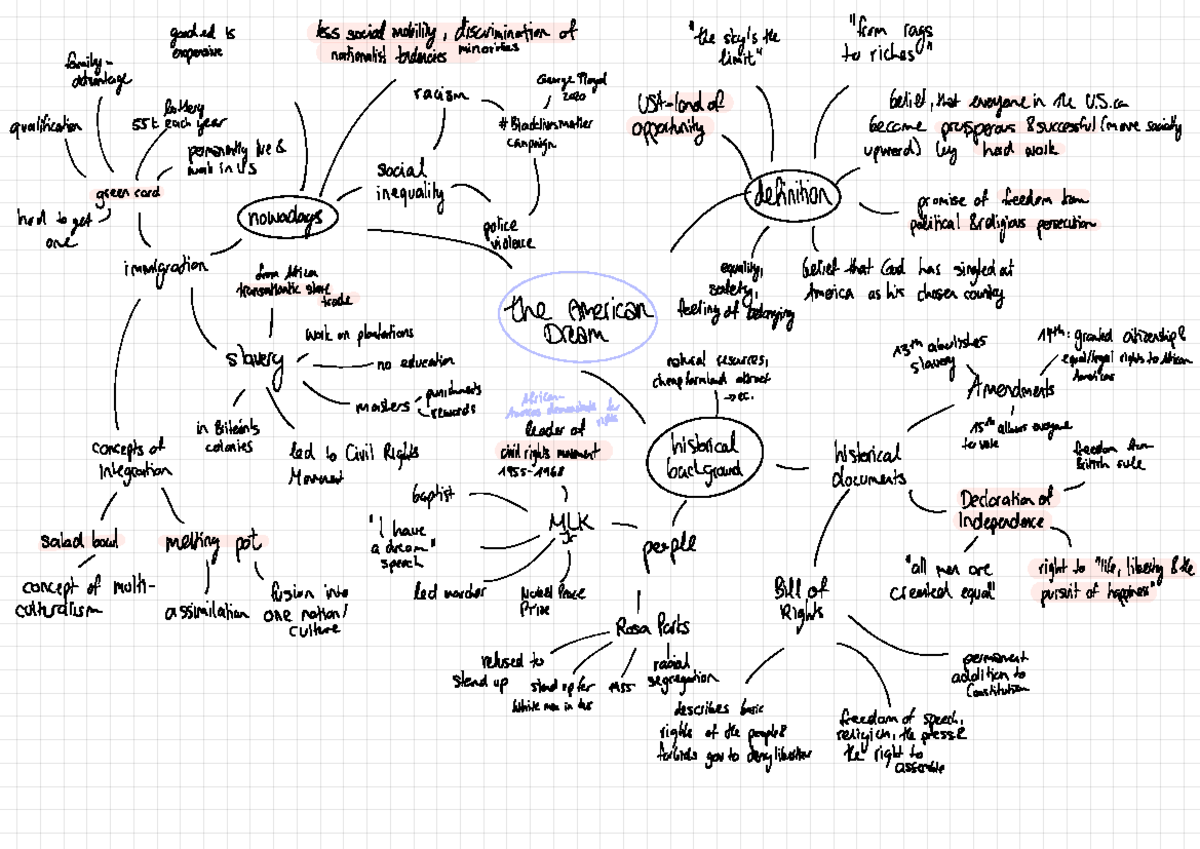 good ed is
expensive
less social mobility, discrimination of
nationalist tendencies minorities
family-
advantage
qualification
lottery
55t each year
permanently live &
work in US
green card
hard to get
one
immigration
nowadays
racism
George Floyd
2020
#Blacklivesmatter
campaign
social
inequality
police
violence
"the sky's the
limit"
"from rags
to riches"
USA-land of
opportunity
belief, that everyone in the U.S. can
become prosperous & successful (move socially
upward) by hard work
definition
promise of freedom from
political & religious persecution
equality,
safety,
feeling of belonging
belief that God has singled out
America as his chosen country
the American
Dream
from African
transatlantic slave
trade
slavery
work on plantations
no education
masters
punishments
rewards
in British
colonies
led to Civil Rights
Movement
concepts of
Integration
salad bowl
concept of multi-
culturalism
melting pot
assimilation
fusion into
one nation/
culture
natural resources,
cheap farmland attract
→ ec.
historical
background
African-
Americans demonstrate for
rights
leader of
civil rights movement
1955-1968
baptist
"I have
a dream"
speech
led marches
Nobel Peace
Prize
MLK
Jr
people
Rosa Parks
refused to
stand up
stand up for
white man in bus
1955
racial
segregation
historical
documents
13th abolishes
slavery
14th: granted citizenship &
equal/legal rights to African
Americas
Amendments
15th allows everyone
to vote
freedom from
British rule
Declaration of
Independence
"all men are
created equal"
right to "life, liberty & the
pursuit of happiness"
Bill of
Rights
describes basic
rights of the people &
forbids gov to deny liberties
freedom of speech,
religion, the press &
the right to
assemble
permanent
addition to
Constitution